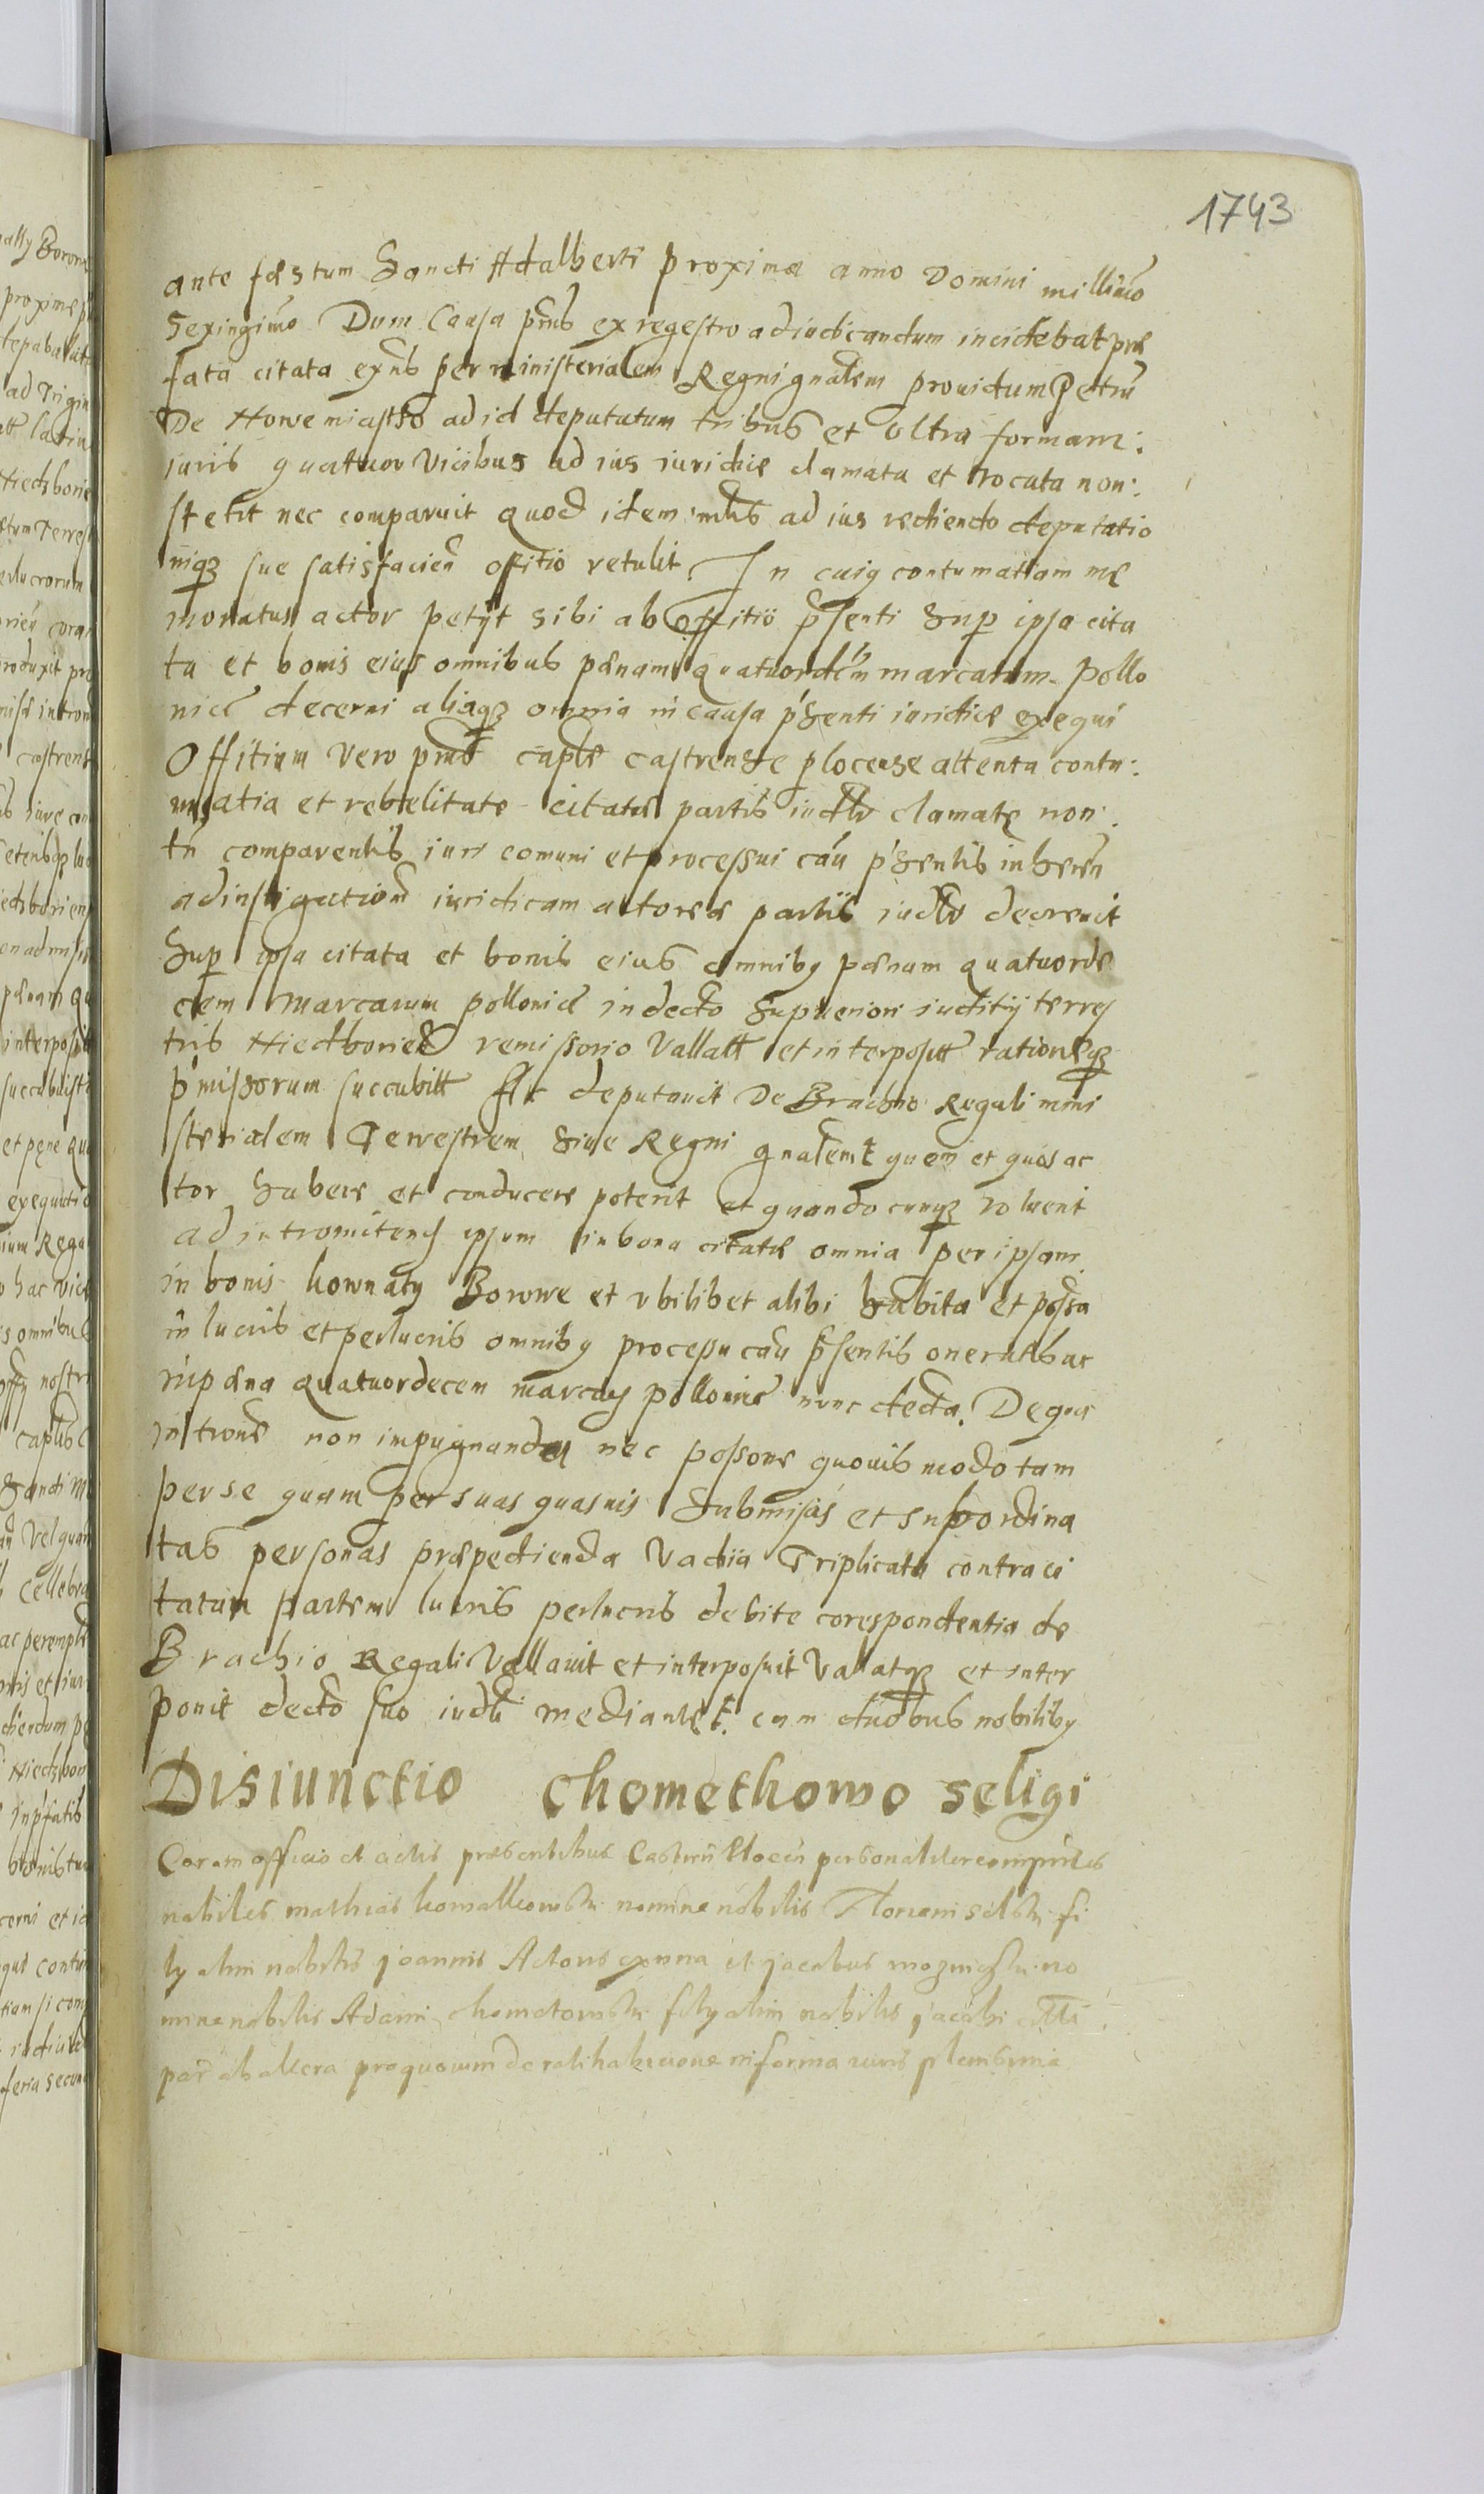 1743
ante fæstum Sancti Adalberti proximæ anno Domini millimo
Sexingimo Dum Causa pmis ex regestro adiudicandum incidebat præ
fata citata exnis per ministerialem Regni gnalem prouidum Petru
De Nowemiasto ad id deputatum tribus et vltra formam:
iuris quatuor vicibus ad ius iuridice clamata et vocata non:
stetit nec comparuit quod idem mlis ad ius rediendo deputatio
niqz sue satisfacien offitio retulit In cuiq contumatiam me
moratus actor petijt sibi ab offitio psenti Sup ipsa cita
ta et bonis eius omnibus pænam quatuordcim marcarum Pollo
nice decerni aliaqz omnia in causa psenti iuridice exequi
Offitium vero pmo caple castrense plocense attenta contu:
matia et rebelitate citatæ partis iudtr clamate non:
tn comparentis iuri comuni et processui cau psentis inheren
ad instigationem iuridicam actoreæ partis iudtr decreuit
Sup ipsa citata et bonis eius omnibq pænam quatuorde
cem marcarum pollonice in decto superiori iuditij terres
tris Niedborien remissorio vallatt et interposutt rationeqz
pmissorum succubitt At deputauit De Brachio Regali mini
sterialem Terrestrem Siue Regni gnalemt quem et quos ac
tor habere et conducere poterit et quando cunqz voluerit
ad intromitend ipsum in bona citatæ omnia per ipsam
in bonis kownaty Borowe et vbilibet alibi habita et possa
in lucris et perlucris omnibq processu cau psentis oneratis ac
in pæna quatuordecem marcary pollonice nunc decta. De qua
introne non impugnanda nec possone quouis modo tam
per se quam per suas quasuis Submissas et subordina
tas personas præpedienda vadia Triplicata contra ci
tatam partem lucris perlucris debite corespondentia de
Brachio Regali Vallauit et interposuit Valatqz et inter
ponit decto suo iudti mediantet. cum duobus nobilibq
Disiunctio Chomethowo seligi
Coram officio et actis præsentibus Castren Plocen personaliter comparentes
nabiles mathias komalkowski nomine nobilis Floriani selski fi
ly olim nobilis joannis Actoris ex una et jacobus mozinski no
mine nobilis Adami chometowski fily olim nobilis jacobi citti
par ab altera pro quorum de ratihabicione in forma iuris plenissima